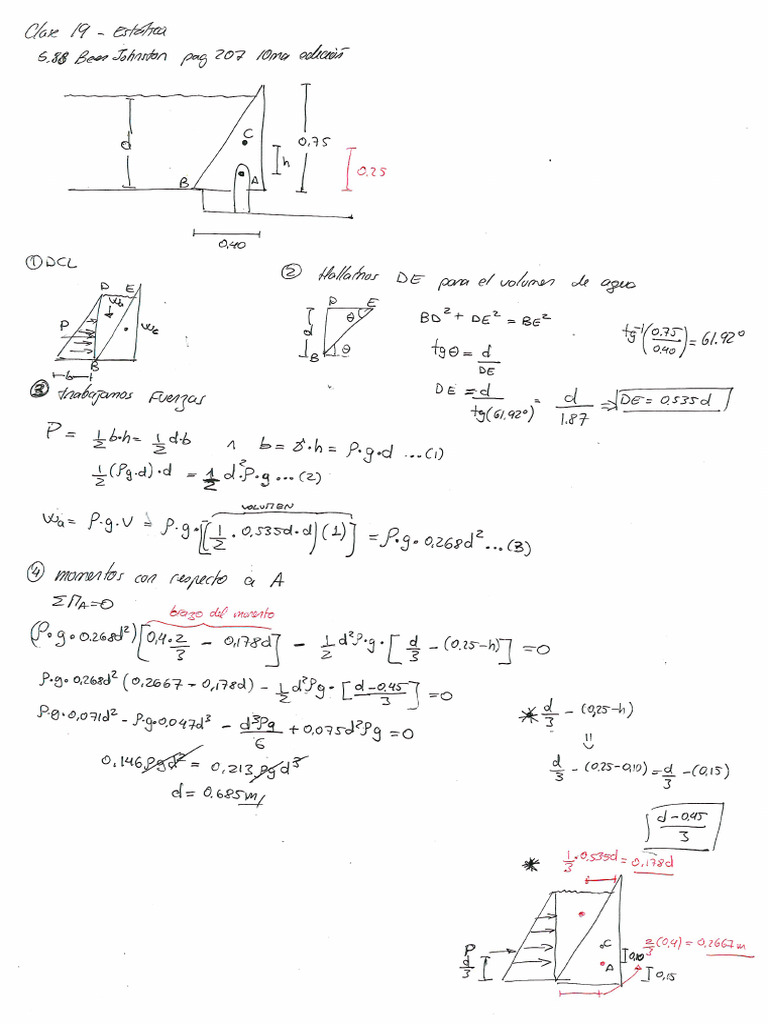 Clase 19 - Estática
5.88 Beer Johnston pag 207 10ma edición
d
C
0,75
h
0.25
B
A
0,40
① DCL
D E
Wa
P
Wc
B
b
② Hallamos DE para el volumen de agua
D E
θ
d
B
θ
BD² + DE² = BE²
tgθ = d/DE
DE = d/tg(61.92°) = d/1.87 ⇒ DE = 0.535d
tg⁻¹(0.75/0.40) = 61.92°
③ trabajamos Fuerzas
P = 1/2 b·h = 1/2 d·b ∧ b = γ·h = ρ·g·d ...(1)
1/2 (ρg·d)·d = 1/2 d²ρ·g ...(2)
VOLUMEN
Wa = ρ·g·V = ρ·g·[(1/2 · 0,535d·d)(1)] = ρ·g·0,268d² ...(3)
④ momentos con respecto a A
ΣMA=0
brazo del momento
(ρ·g·0.268d²)[0,4·2/3 - 0,178d] - 1/2 d²ρ·g·[d/3 - (0.25-h)] = 0
ρ·g·0,268d² (0,2667 - 0,178d) - 1/2 d²ρg·[d-0.45/3] = 0
ρ·g·0,071d² - ρ·g·0,047d³ - d³ρg/6 + 0,075d²ρg = 0
0,146ρgd² = 0,213ρgd³
d = 0.685m
* d/3 - (0,25-h)
=
d/3 - (0.25-0,10) = d/3 - (0,15)
d-0,45/3
* 1/3·0,535d = 0,178d
P
d/3
C
A
2/3(0,4) = 0,2667m
0,10
0,15